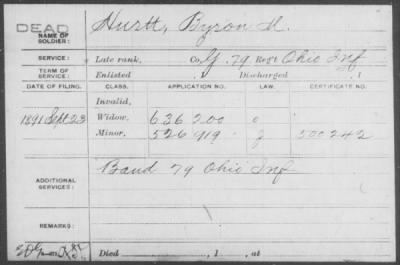 DEAD
NAME OF SOLDIER: Hurtt, Byron
SERVICE: Late rank, Co. G. 79 Reg't Ohio Inf
TERM OF SERVICE: Enlisted , 1 Discharged , 1
DATE OF FILING. CLASS. APPLICATION NO. LAW. CERTIFICATE NO.
Invalid,
1891 Sept 23 Widow, 636200
Minor, 526919 500242
ADDITIONAL SERVICES: Band 79 Ohio Inf
REMARKS:
Died , 1 , at